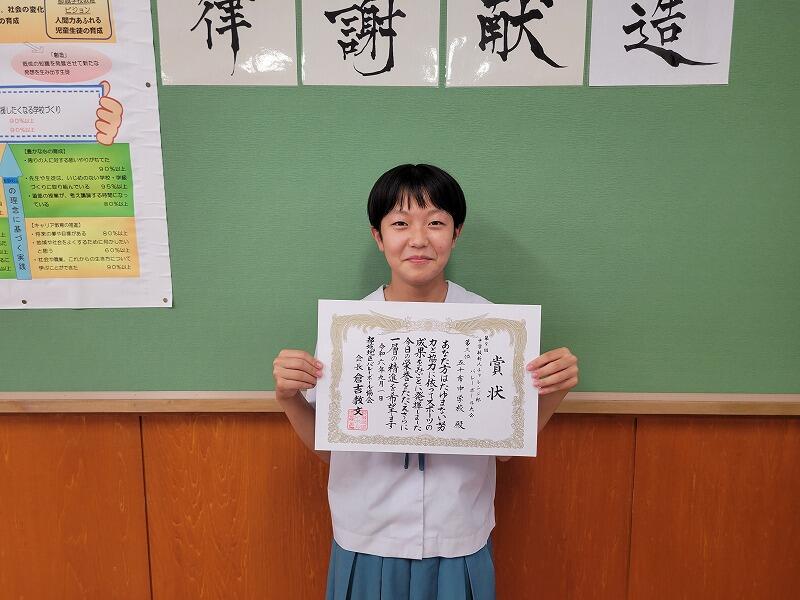 律
謝
献
造
、社会の変化
の育成
ビジョン
人間力あふれる
児童生徒の育成
「創造」
既成の知識を発展させて新たな
発想を生み出す生徒
援したくなる学校づくり
90%以上
90%以上
【豊かな心の育成】
・周りの人に対する思いやりがもてた
90%以上
・先生や生徒は、いじめのない学校・学級
づくりに取り組んでいる 95%以上
・道徳の授業が、考え議論する時間になっ
ている 80%以上
の理念に基づく実践
【キャリア教育の推進】
・将来の夢や目標がある 80%以上
・地域や社会をよくするために何かしたい
と思う 60%以上
・社会や職業、これからの生き方について
学ぶことができた 90%以上
賞状
第9回
バレーボール大会
第三位 五十市中学校 殿
あなた方はたゆまない努
力と協力に依ってスポーツの
成果をみごとに発揮しました
今日の栄誉をたたえさらに
一層の精進を希望します
令和六年九月一日
都城地区バレーボール協会
会長 倉吉教文